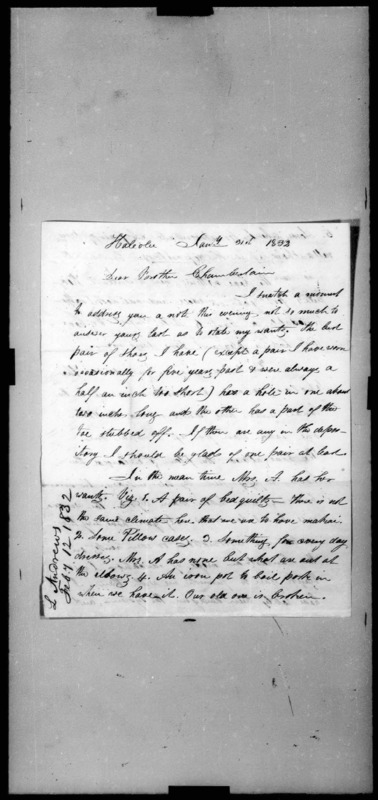 Haleolu Jany 31st 1832
Dear Brother Chamberlain
I snatch a moment
to address you a not this evening, not so much to
answer yours last as to state my wants. The best
pair of shoes I have (except a pair I have worn
occasionally for five years past & were always a
half an inch too short) has a hole in one about
two inches long and the other has a part of the
toe stubbed off. If there are any in the depos-
itory I should be glad of one pair at least
In the mean time Mrs. A. has her
wants. Viz 1. A pair of bedquilts. This is not
the same climate here that we use to have
2. Some Pillow cases 3. Something for every day
dresses. Mrs. A has none but what are out at
the elbows 4. An iron pot to boil pork in
when we have it. Our old one is broken.
L. Andrews
Feb. 7 12 1832